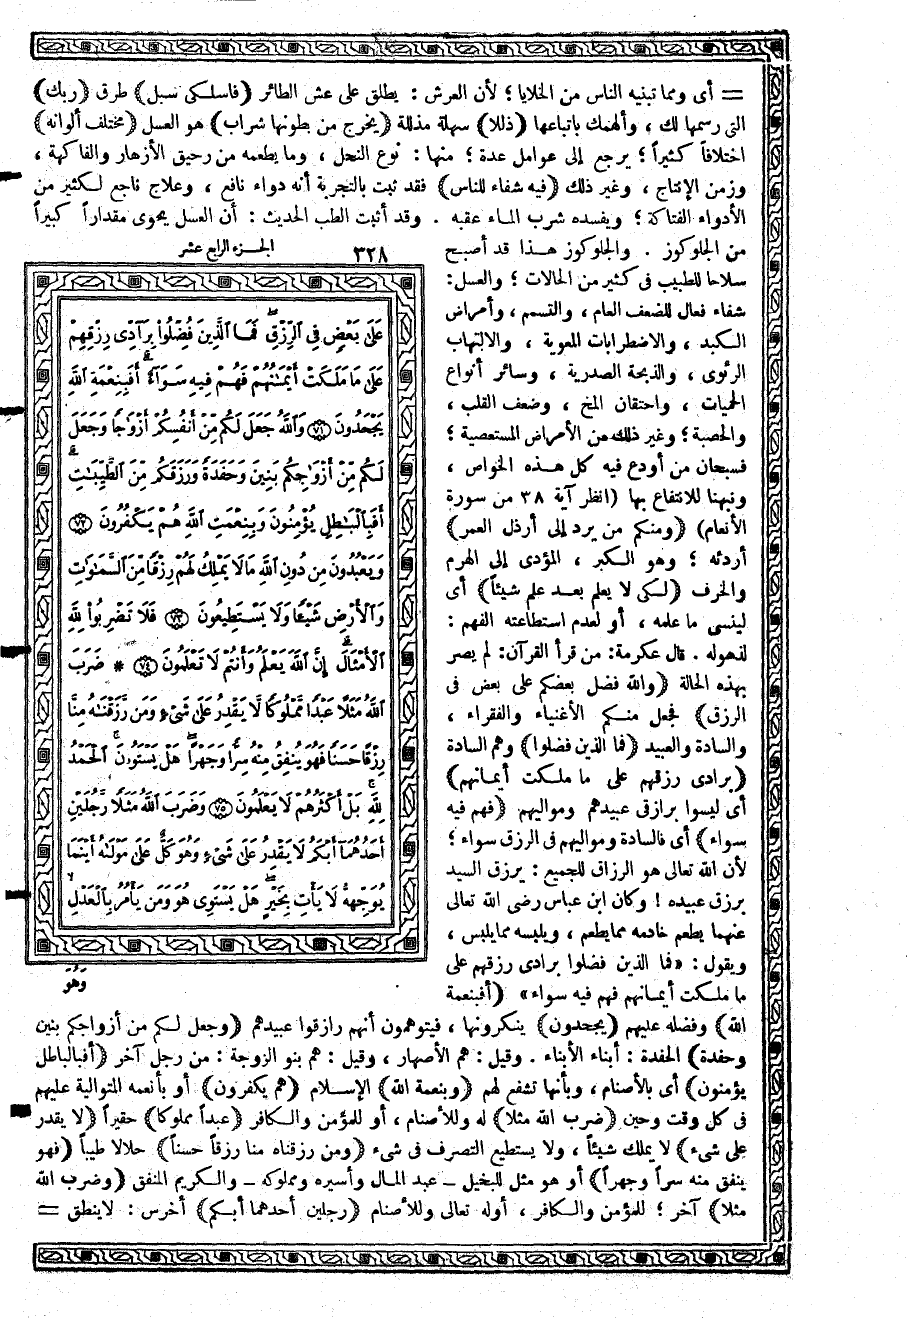 = أى ومما تبنيه الناس من الخلايا ؛ لأن العرش : يطلق على عش الطائر (فاسلكى سبل) طرق (ربك)
التى رسمها لك ، وألهمك باتباعها (ذللا) سهلة مذللة (يخرج من بطونها شراب) هو العسل (مختلف ألوانه)
اختلافاً كثيراً ؛ يرجع إلى عوامل عدة ؛ منها : نوع النحل ، وما يطعمه من رحيق الأزهار والفاكهة ،
وزمن الإنتاج ، وغير ذلك (فيه شفاء للناس) فقد ثبت بالتجربة أنه دواء نافع ، وعلاج ناجع لكثير من
الأدواء الفتاكة ؛ ويفسده شرب الماء عقبه . وقد أثبت الطب الحديث : أن العسل يحوى مقداراً كبيراً
من الجلوكوز . والجلوكوز هذا قد أصبح
سلاحا للطبيب فى كثير من الحالات ؛ والعسل:
شفاء فعال للضعف العام ، والتسمم ، وأمراض
الكبد ، والاضطرابات المعوية ، والالتهاب
الرئوى ، والذبحة الصدرية ، وسائر أنواع
الحميات ، واحتقان المخ ، وضعف القلب ،
والحصبة ؛ وغير ذلك من الأمراض المستعصية ؛
فسبحان من أودع فيه كل هذه الخواص ،
ونبهنا للانتفاع بها (انظر آية ٣٨ من سورة
الأنعام) (ومنكم من يرد إلى أرذل العمر)
أردئه ؛ وهو الكبر ، المؤدى إلى الهرم
والخرف (لكى لا يعلم بعد علم شيئاً) أى
لينسى ما علمه ، أو لعدم استطاعته الفهم :
لذهوله . قال عكرمة: من قرأ القرآن: لم يصر
بهذه الحالة (والله فضل بعضكم على بعض فى
الرزق) فجعل منكم الأغنياء والفقراء ،
والسادة والعبيد (فما الذين فضلوا) وهم السادة
(برادى رزقهم على ما ملكت أيمانهم)
أى ليسوا برازقى عبيدهم ومواليهم (فهم فيه
سواء) أى فالسادة ومواليهم فى الرزق سواء ؛
لأن الله تعالى هو الرزاق للجميع : يرزق السيد
يرزق عبيده ! وكان ابن عباس رضى الله تعالى
عنهما يطعم خادمه مما يطعم ، ويلبسه مما يلبس ،
ويقول : «فما الذين فضلوا برادى رزقهم على
ما ملكت أيمانهم فهم فيه سواء» (أفبنعمة
٣٢٨ الجزء الرابع عشر
عَلَىٰ بَعْضٍ فِى ٱلرِّزْقِ ۚ فَمَا ٱلَّذِينَ فُضِّلُوا۟ بِرَآدِّى رِزْقِهِمْ
عَلَىٰ مَا مَلَكَتْ أَيْمَـٰنُهُمْ فَهُمْ فِيهِ سَوَآءٌ ۚ أَفَبِنِعْمَةِ ٱللَّهِ
يَجْحَدُونَ ﴿٧١﴾ وَٱللَّهُ جَعَلَ لَكُم مِّنْ أَنفُسِكُمْ أَزْوَٰجًا وَجَعَلَ
لَكُم مِّنْ أَزْوَٰجِكُم بَنِينَ وَحَفَدَةً وَرَزَقَكُم مِّنَ ٱلطَّيِّبَـٰتِ ۚ
أَفَبِٱلْبَـٰطِلِ يُؤْمِنُونَ وَبِنِعْمَتِ ٱللَّهِ هُمْ يَكْفُرُونَ ﴿٧٢﴾
وَيَعْبُدُونَ مِن دُونِ ٱللَّهِ مَا لَا يَمْلِكُ لَهُمْ رِزْقًا مِّنَ ٱلسَّمَـٰوَٰتِ
وَٱلْأَرْضِ شَيْـًٔا وَلَا يَسْتَطِيعُونَ ﴿٧٣﴾ فَلَا تَضْرِبُوا۟ لِلَّهِ
ٱلْأَمْثَالَ ۚ إِنَّ ٱللَّهَ يَعْلَمُ وَأَنتُمْ لَا تَعْلَمُونَ ﴿٧٤﴾ * ضَرَبَ
ٱللَّهُ مَثَلًا عَبْدًا مَّمْلُوكًا لَّا يَقْدِرُ عَلَىٰ شَىْءٍ وَمَن رَّزَقْنَـٰهُ مِنَّا
رِزْقًا حَسَنًا فَهُوَ يُنفِقُ مِنْهُ سِرًّا وَجَهْرًا ۖ هَلْ يَسْتَوُۥنَ ۚ ٱلْحَمْدُ
لِلَّهِ ۚ بَلْ أَكْثَرُهُمْ لَا يَعْلَمُونَ ﴿٧٥﴾ وَضَرَبَ ٱللَّهُ مَثَلًا رَّجُلَيْنِ
أَحَدُهُمَآ أَبْكَمُ لَا يَقْدِرُ عَلَىٰ شَىْءٍ وَهُوَ كَلٌّ عَلَىٰ مَوْلَىٰهُ أَيْنَمَا
يُوَجِّههُّ لَا يَأْتِ بِخَيْرٍ ۖ هَلْ يَسْتَوِى هُوَ وَمَن يَأْمُرُ بِٱلْعَدْلِ ۙ
وَهُوَ
الله) وفضله عليهم (يجحدون) ينكرونها ، فيتوهمون أنهم رازقوا عبيدهم (وجعل لكم من أزواجكم بنين
وحفدة) الحفدة : أبناء الأبناء . وقيل : هم الأصهار ، وقيل : هم بنو الزوجة : من رجل آخر (أفبالباطل
يؤمنون) أى بالأصنام ، وبأنها تشفع لهم (وبنعمة الله) الإسلام (هم يكفرون) أو بأنعمه المتوالية عليهم
فى كل وقت وحين (ضرب الله مثلا) له وللأصنام ، أو للمؤمن والكافر (عبداً مملوكا) حقيراً (لا يقدر
على شىء) لا يملك شيئاً ، ولا يستطيع التصرف فى شىء (ومن رزقناه منا رزقاً حسناً) حلالا طيباً (فهو
ينفق منه سراً وجهراً) أو هو مثل للبخيل ـ عبد المال وأسيره ومملوكه ـ والكريم المنفق (وضرب الله
مثلا) آخر ؛ للمؤمن والكافر ، أوله تعالى وللأصنام (رجلين أحدهما أبكم) أخرس : لا ينطق =